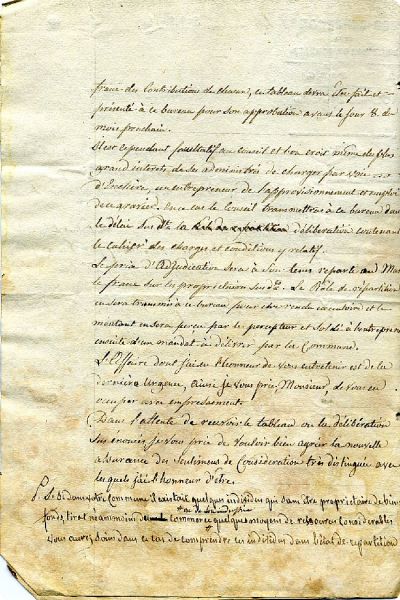 franc des Contributions de chacun, ce tableau devra être fait et
présenté à ce bureau pour son approbation avant le jour 8. de
mois prochain.
Il est cependant facultatif au Conseil et l'on croit même des plus
grand interets de ses administrés de charger par voie
d'Enchère, un entrepreneur de l'approvisionnement et emploi
de ce gravier. En ce cas le Conseil transmettra à ce bureau dans
le délai sus dit la délibération contenant
le cahier des charges et conditions y relatif.
Le prix d'Adjudication sera à son tems reparti au Marc
le franc sur les propriétaires sus ds. Le Rôle de répartition
en sera transmis à ce bureau pour être rendu exécutoire et le
montant en sera perçu par le percepteur et soldé à l'entrepreneur
ensuite d'un mandat à délivrer par la Commune.
L'Affaire dont j'ai eu l'honneur de vous entretenir est de la
dernière urgence, aussi je vous prie, Monsieur de vous en
occuper avec empressement.
Dans l'attente de recevoir le tableau ou la délibération
sus énoncés, je vous prie de vouloir bien agréer la nouvelle
assurance des sentimens de Considération très distinguée avec
lesquels j'ai l'honneur d'être.
P.S. Si dans votre Commune il existait quelques individus qui sans être propriétaire de biens
ou de l'industrie
fonds, tirat néanmoins du commerce quelques moyens de ressources considerables
vous aurez soin dans ce cas de comprendre ces individus dans l'état de repartition